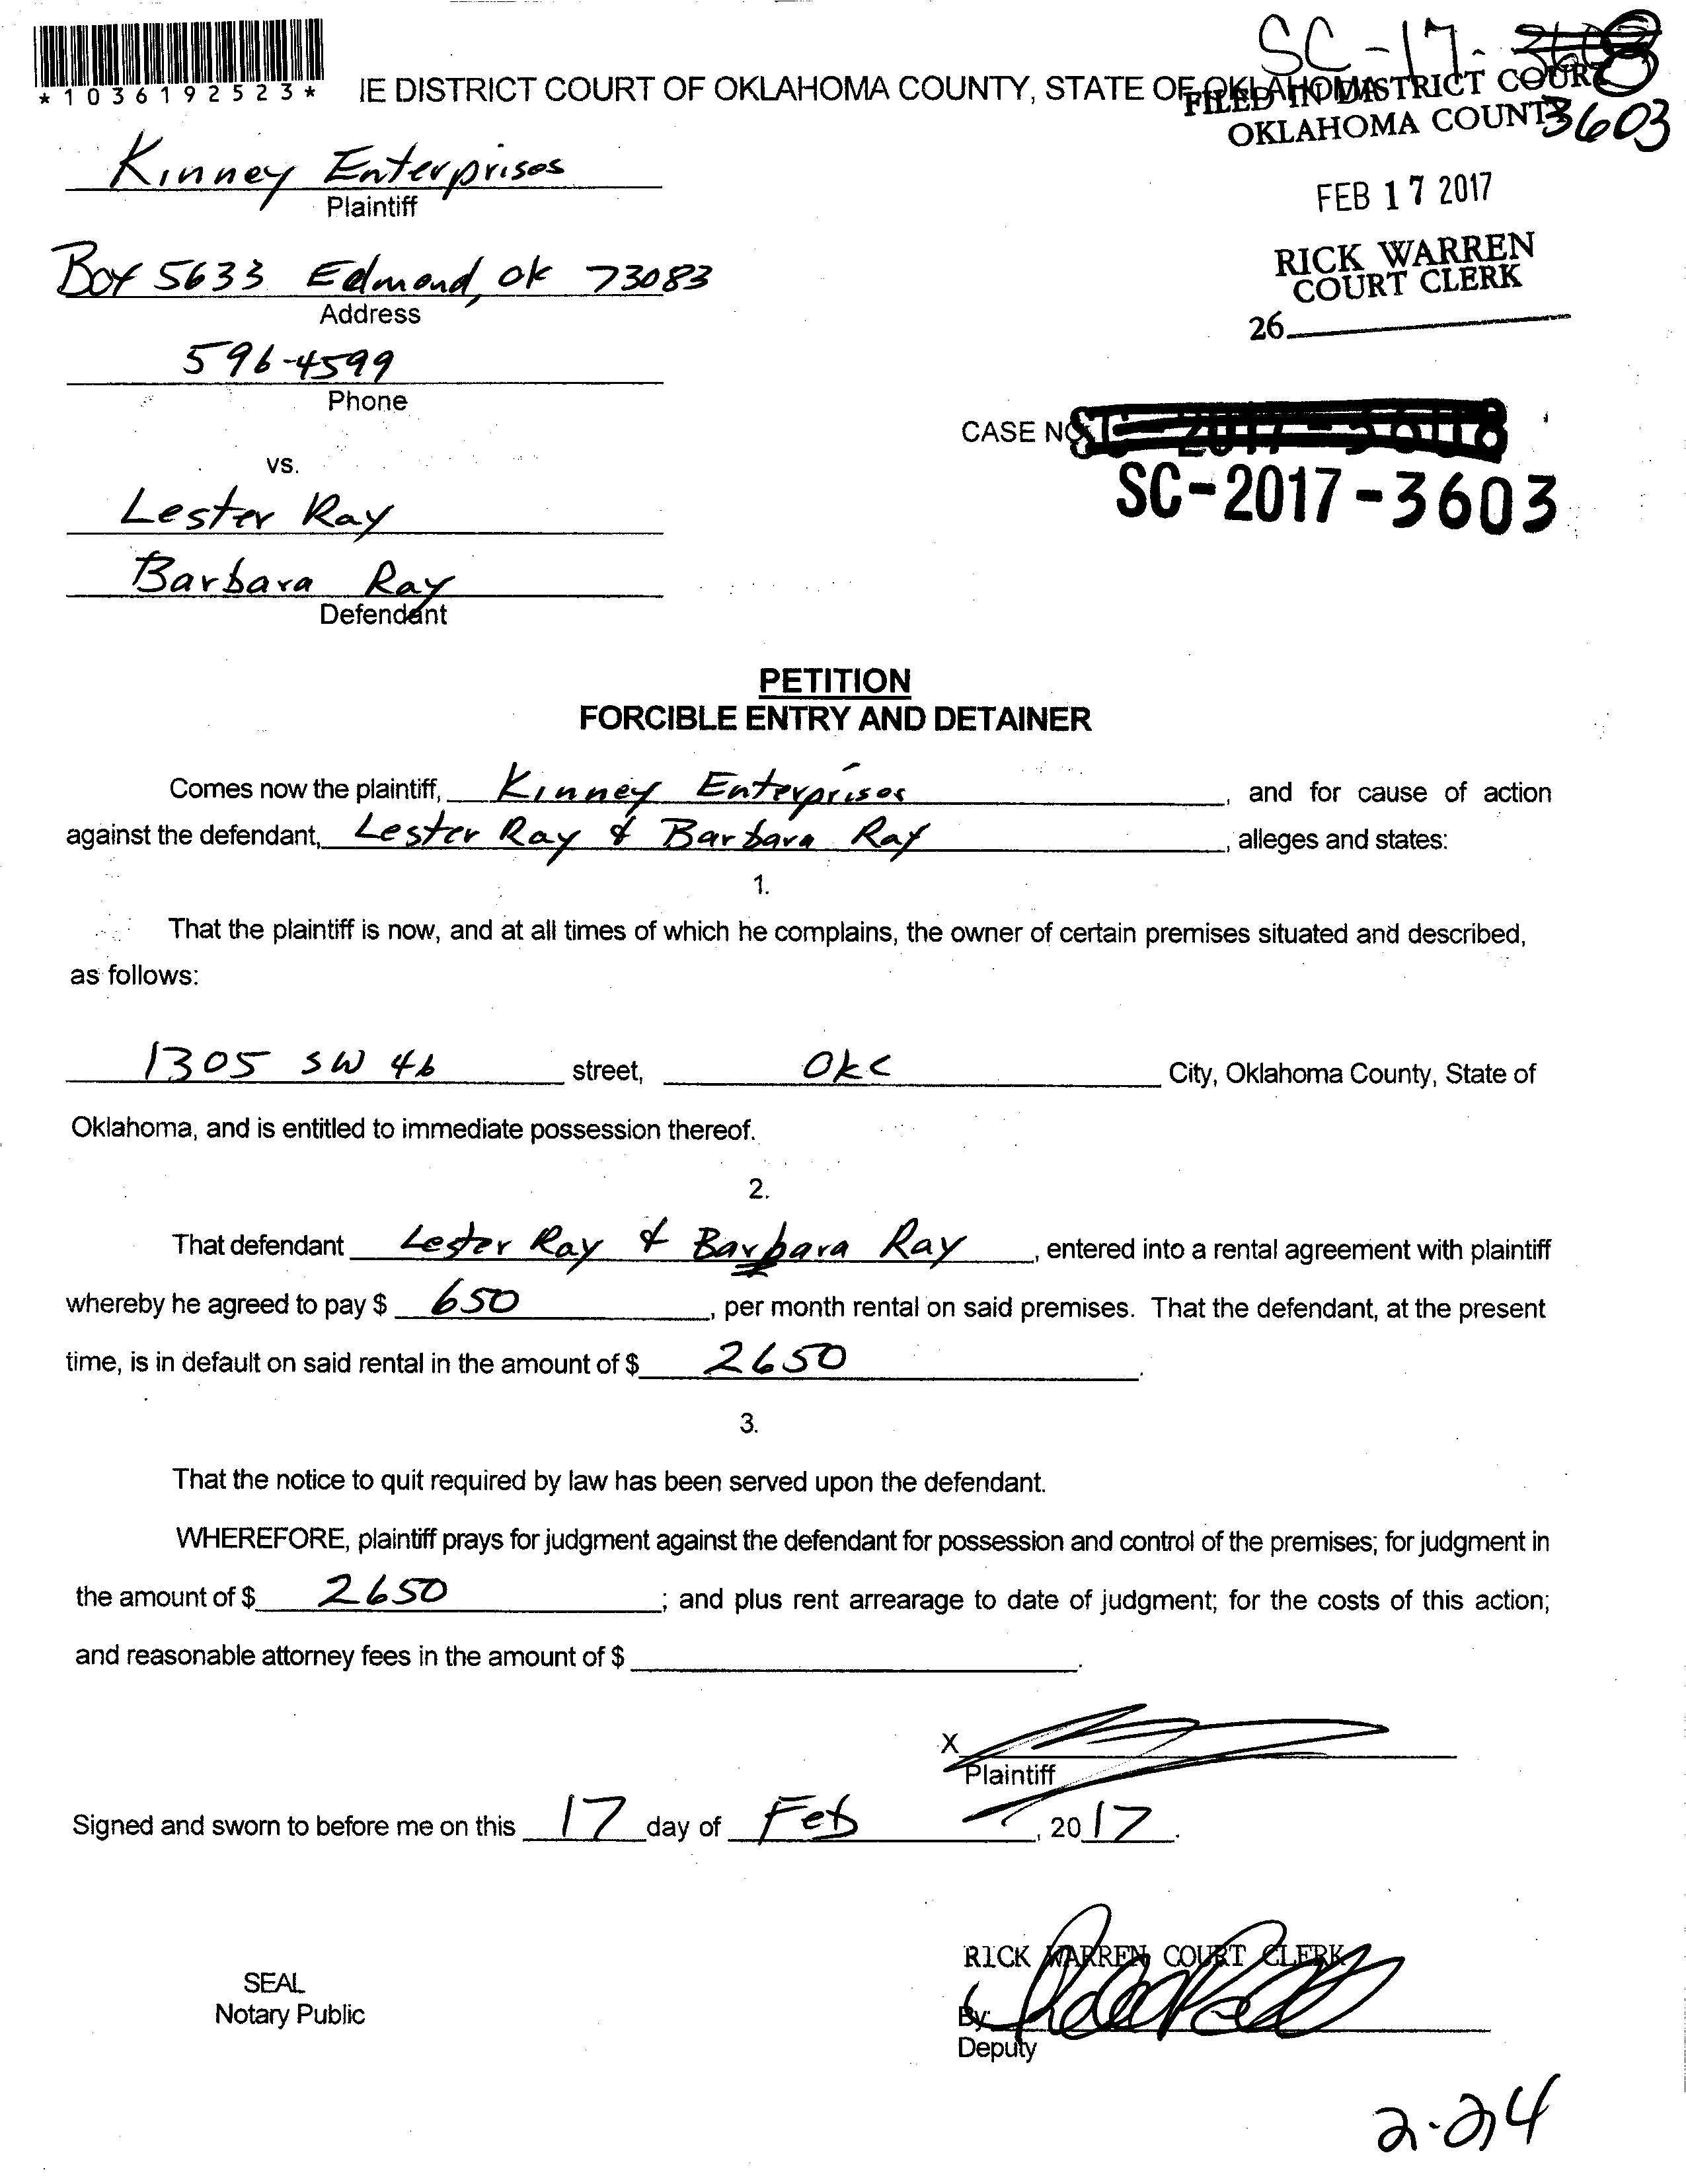 SC-17-
*1036192523*
IE DISTRICT COURT OF OKLAHOMA COUNTY, STATE OF OKLAHOMA
FILED IN DISTRICT COURT
OKLAHOMA COUNTY
3603
Kinney Enterprises
Plaintiff
FEB 17 2017
RICK WARREN
COURT CLERK
26
Box 5633 Edmond, OK 73083
Address
596-4599
Phone
CASE NO.
SC-2017-3603
vs.
Lester Ray
Barbara Ray
Defendant
PETITION
FORCIBLE ENTRY AND DETAINER
Comes now the plaintiff, Kinney Enterprises, and for cause of action
against the defendant, Lester Ray & Barbara Ray, alleges and states:
1.
That the plaintiff is now, and at all times of which he complains, the owner of certain premises situated and described,
as follows:
1305 SW 46 street, OKC City, Oklahoma County, State of
Oklahoma, and is entitled to immediate possession thereof.
2.
That defendant Lester Ray & Barbara Ray, entered into a rental agreement with plaintiff
whereby he agreed to pay $ 650, per month rental on said premises. That the defendant, at the present
time, is in default on said rental in the amount of $ 2650.
3.
That the notice to quit required by law has been served upon the defendant.
WHEREFORE, plaintiff prays for judgment against the defendant for possession and control of the premises; for judgment in
the amount of $ 2650; and plus rent arrearage to date of judgment; for the costs of this action;
and reasonable attorney fees in the amount of $ .
X
Plaintiff
Signed and sworn to before me on this 17 day of Feb, 2017.
RICK WARREN COURT CLERK
SEAL
Notary Public
By:
Deputy
2-24